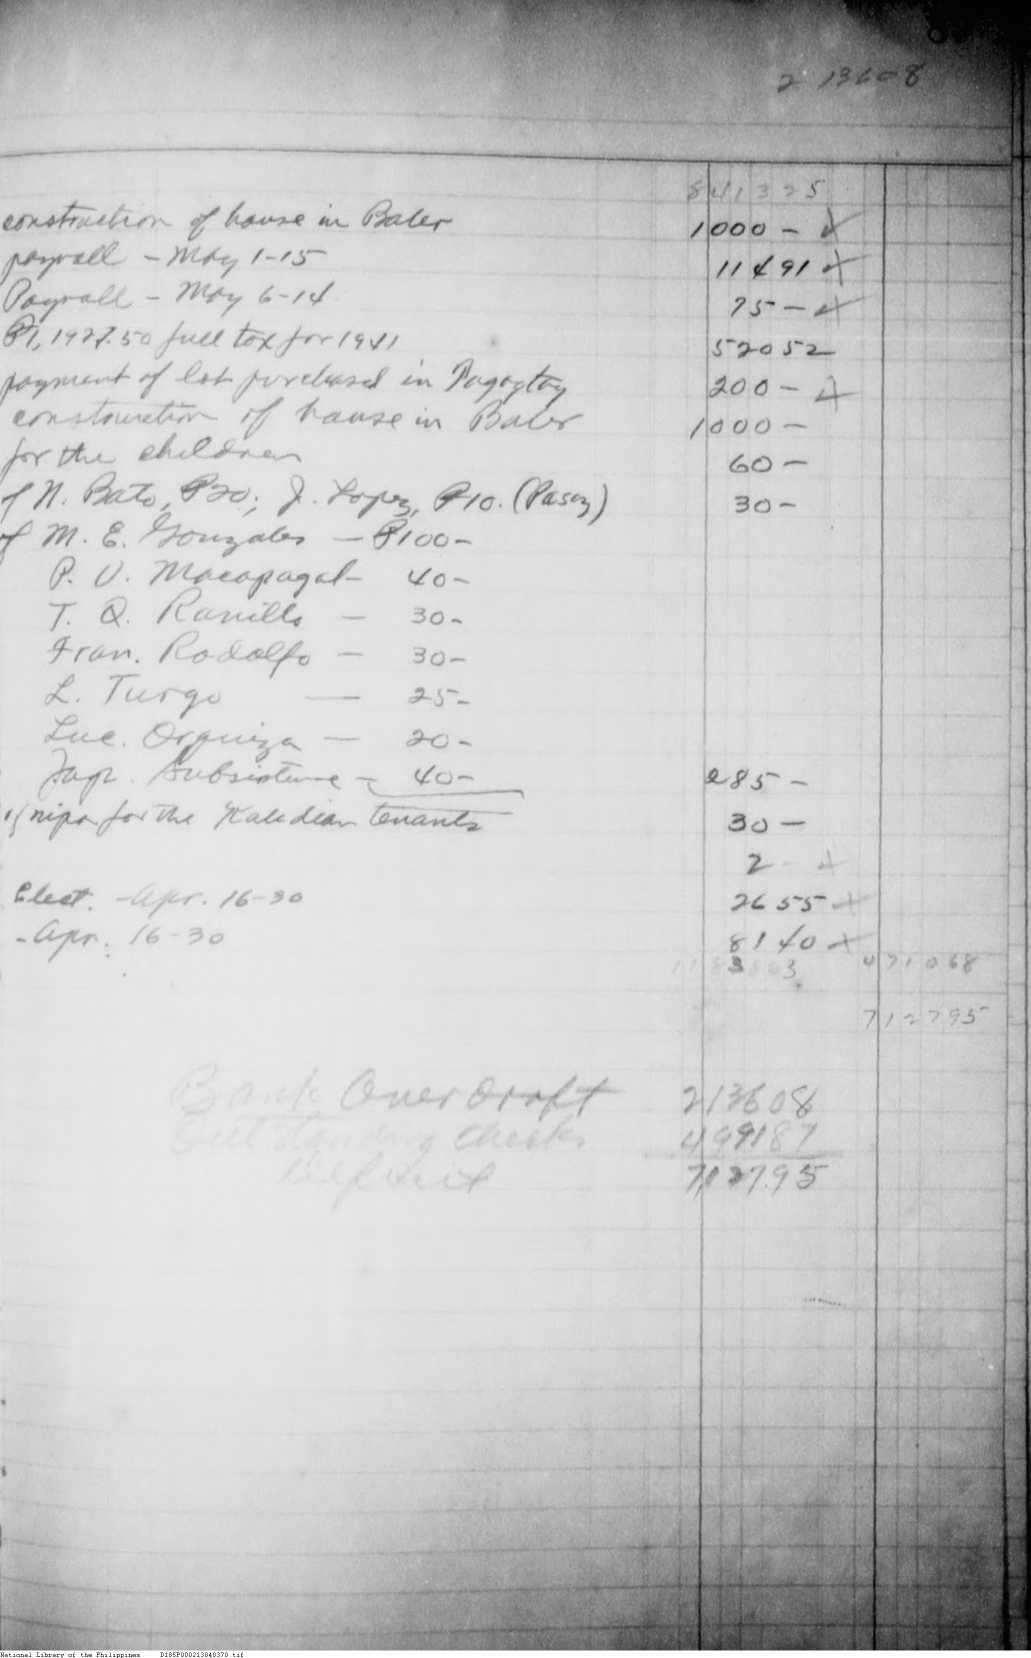 2 136 08
8413 25
construction of house in Baler 1000 -
payroll - May 1-15 114 91
Payroll - May 6-14 75 -
₱1,927.50 full tax for 1941 520 52
payment of lot purchased in Tagaytay 200 -
construction of house in Baler 1000 -
for the children 60 -
of N. Bato, ₱20; J. Lopez, ₱10. (Pasay) 30 -
of M. E. Gonzales - ₱100 -
P. U. Macapagal - 40 -
T. Q. Ranillo - 30 -
Fran. Rodolfo - 30 -
L. Turgo - 25 -
Luc. Orguiza - 20 -
Subsistence - 40 - 285 -
of nipa for the tenants 30 -
2 -
Elect. - Apr. 16-30 26 55
- Apr. 16-30 81 40
4710 68
7127 95
Bank Overdraft 2136 08
Outstanding checks 4991 87
Deficit 7,127.95
National Library of the Philippines D185P000213040370.tif